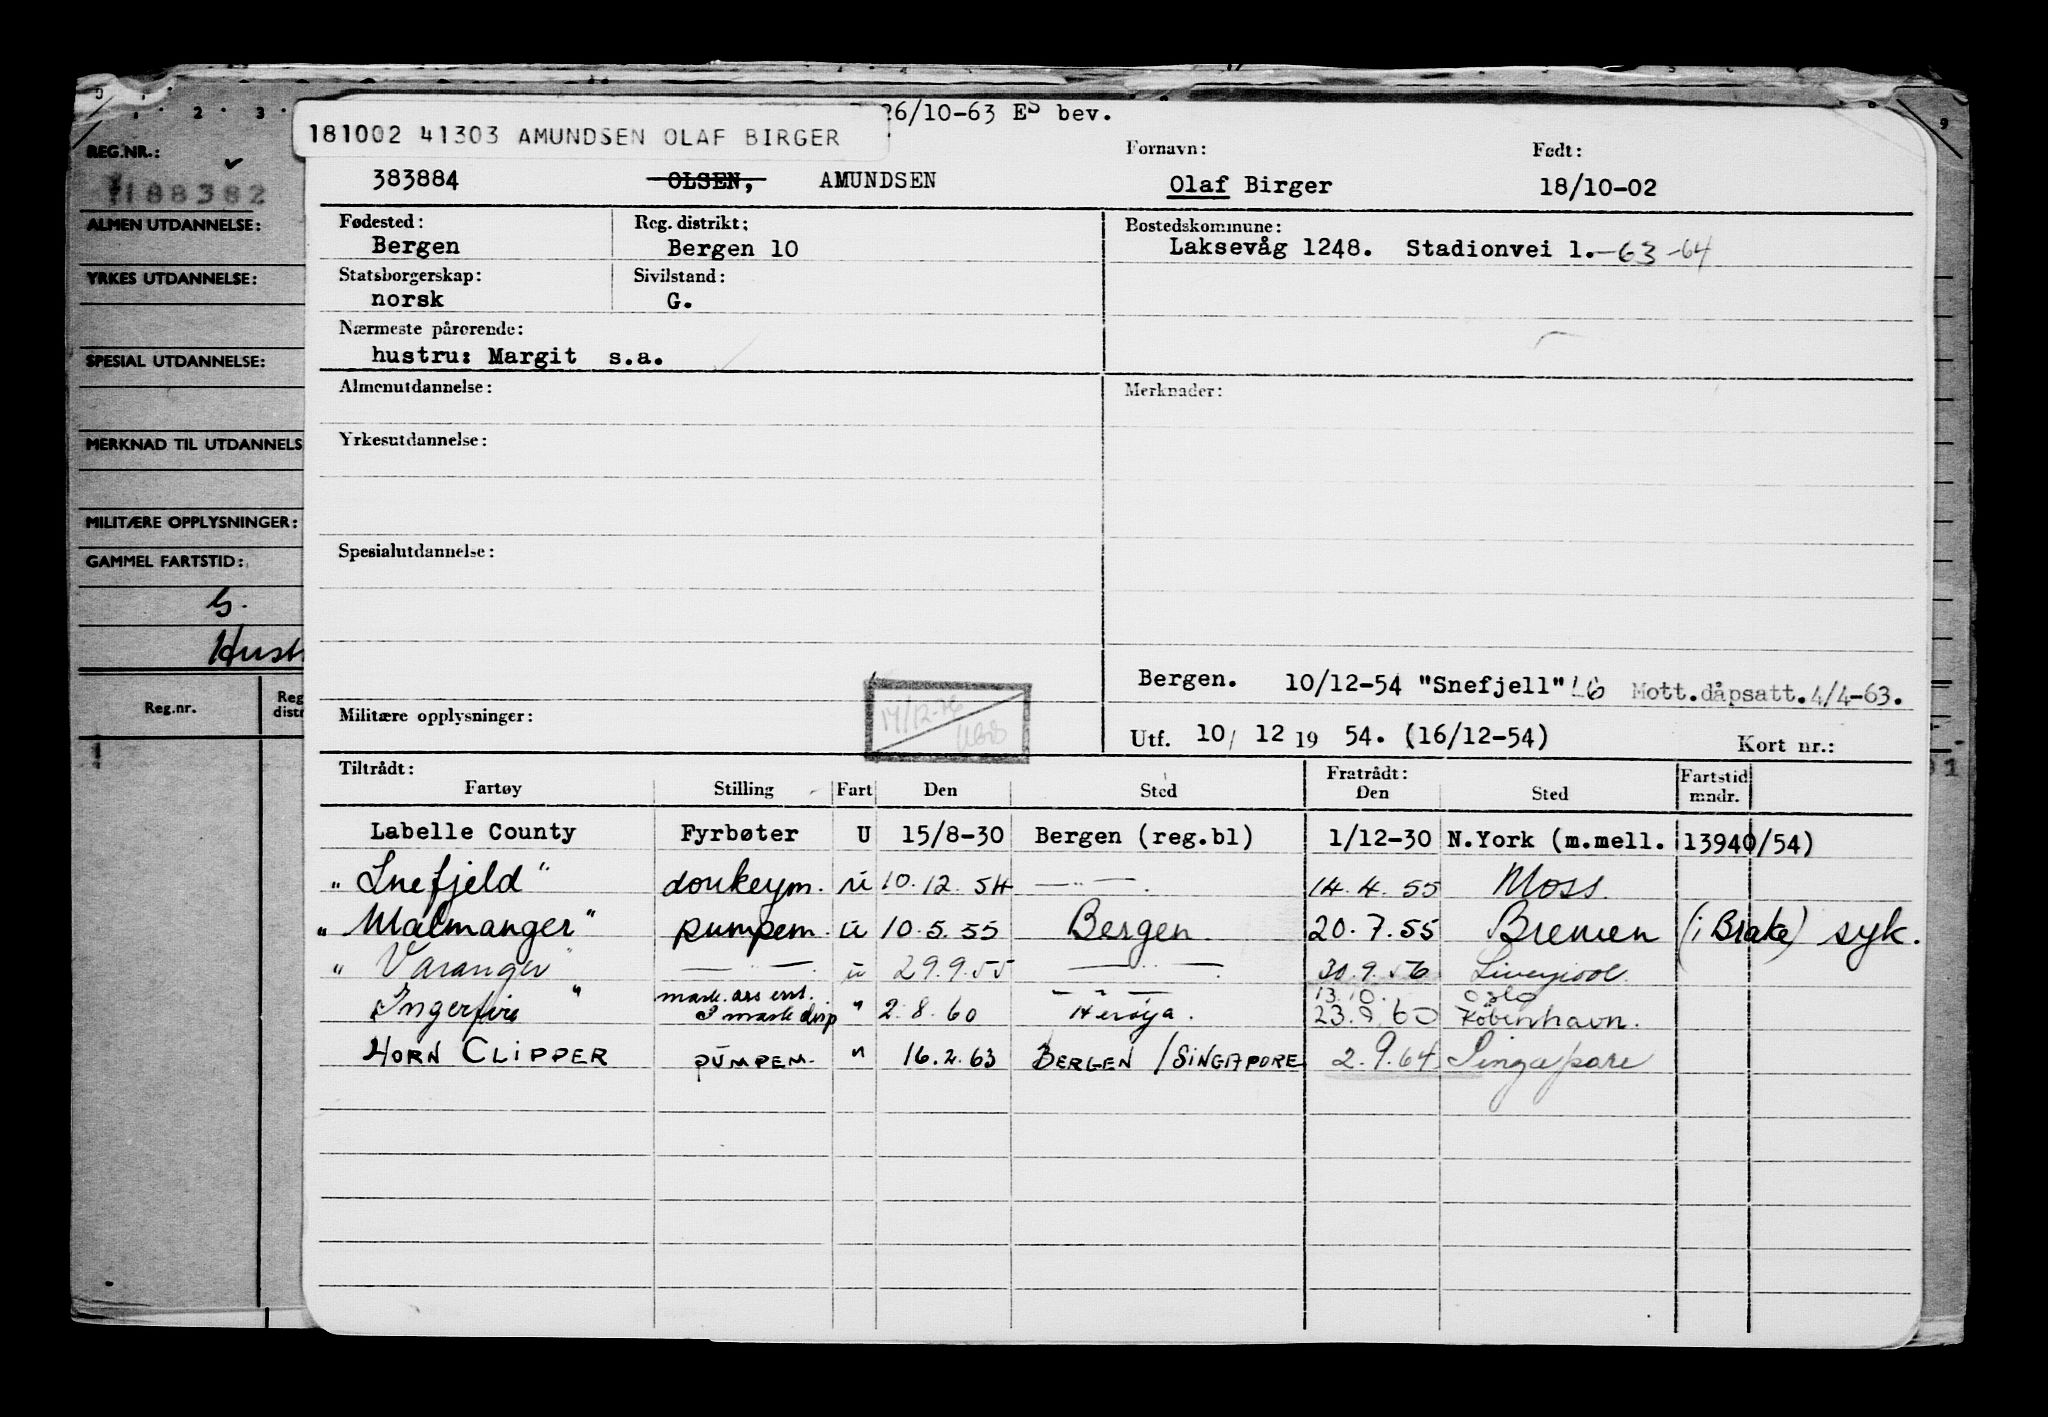 26/10-63 ES bev.
181002 41303 AMUNDSEN OLAF BIRGER
REG.NR.:
188382
Fornavn: Født:
383884 OLSEN, AMUNDSEN Olaf Birger 18/10-02
ALMEN UTDANNELSE:
Fødested: Reg. distrikt: Bostedskommune:
Bergen Bergen 10 Laksevåg 1248. Stadionvei 1.-63-64
YRKES UTDANNELSE:
Statsborgerskap: Sivilstand:
norsk G.
Nærmeste pårørende:
hustru: Margit s.a.
SPESIAL UTDANNELSE:
Almenutdannelse: Merknader:
MERKNAD TIL UTDANNELS
Yrkesutdannelse:
MILITÆRE OPPLYSNINGER:
GAMMEL FARTSTID:
Spesialutdannelse:
G.
Hust
Bergen. 10/12-54 "Snefjell" Mott.dåpsatt.4/4-63.
Reg.nr. Reg distr
Militære opplysninger:
Utf. 10/ 12 19 54. (16/12-54) Kort nr.:
Tiltrådt: Fratrådt: Fartstid
Fartøy Stilling Fart Den Sted Den Sted mndr.
Labelle County Fyrbøter U 15/8-30 Bergen (reg.bl) 1/12-30 N.York (m.mell. 13940/54)
"Snefjeld" donkeym. u 10.12.54 —"—. 14.4.55 Moss.
"Malmanger" pumpem. u 10.5.55 Bergen. 20.7.55 Bremen (i Brake) syk.
"Varanger" —"—. u 29.9.55 —"—. 30.9.56 Liverpool.
—"— 13.10. Oslo
Ingerfire " 2.8.60 Herøya. 23.9.60 København.
HORN CLIPPER PUMPEM. " 16.2.63 BERGEN / SINGAPORE 2.9.64 Singapore